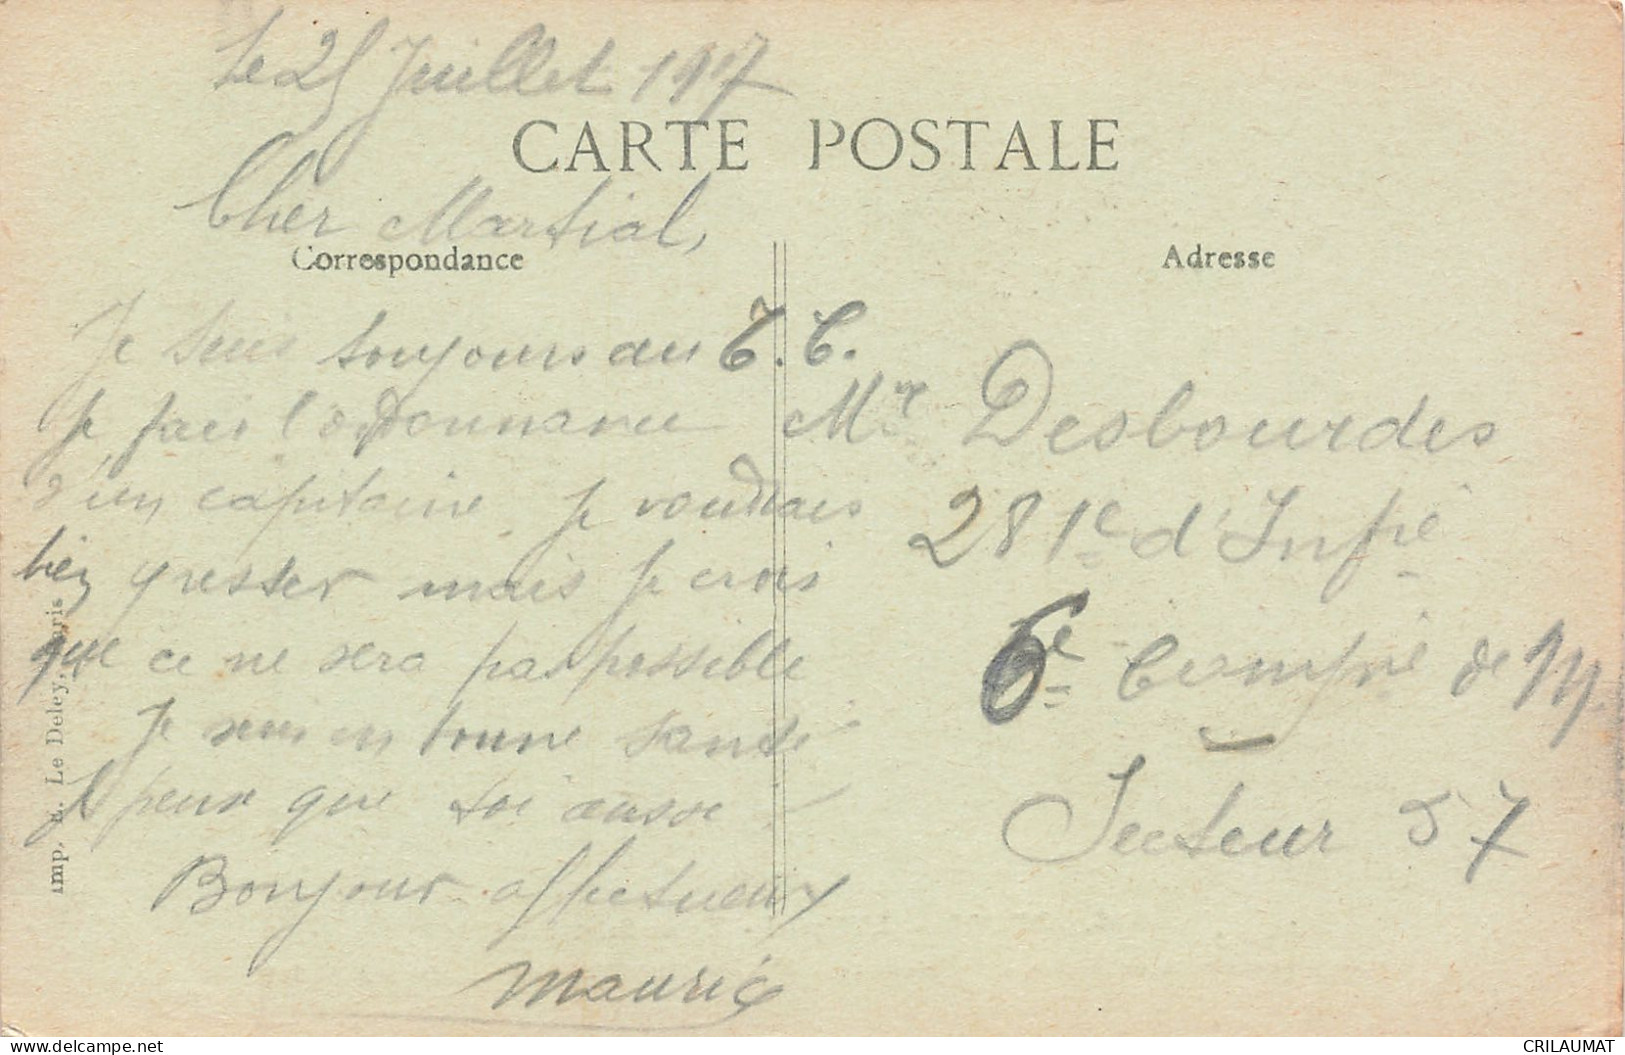 Le 25 Juillet 1917
CARTE POSTALE
Cher Martial,
Correspondance
Je suis toujours au T.C.
Je fais l'ordonnance
d'un capitaine Je voudrais
bien y rester mais je crois
que ce ne sera pas possible
Je suis en bonne santé
Je pense que toi aussi
Bonjour affectueux
Maurice
Adresse
Mr Desbourdes
281e d'Infie
6e Compnie de M
Secteur 57
Imp. E. Le Deley, Paris
CRILAUMAT